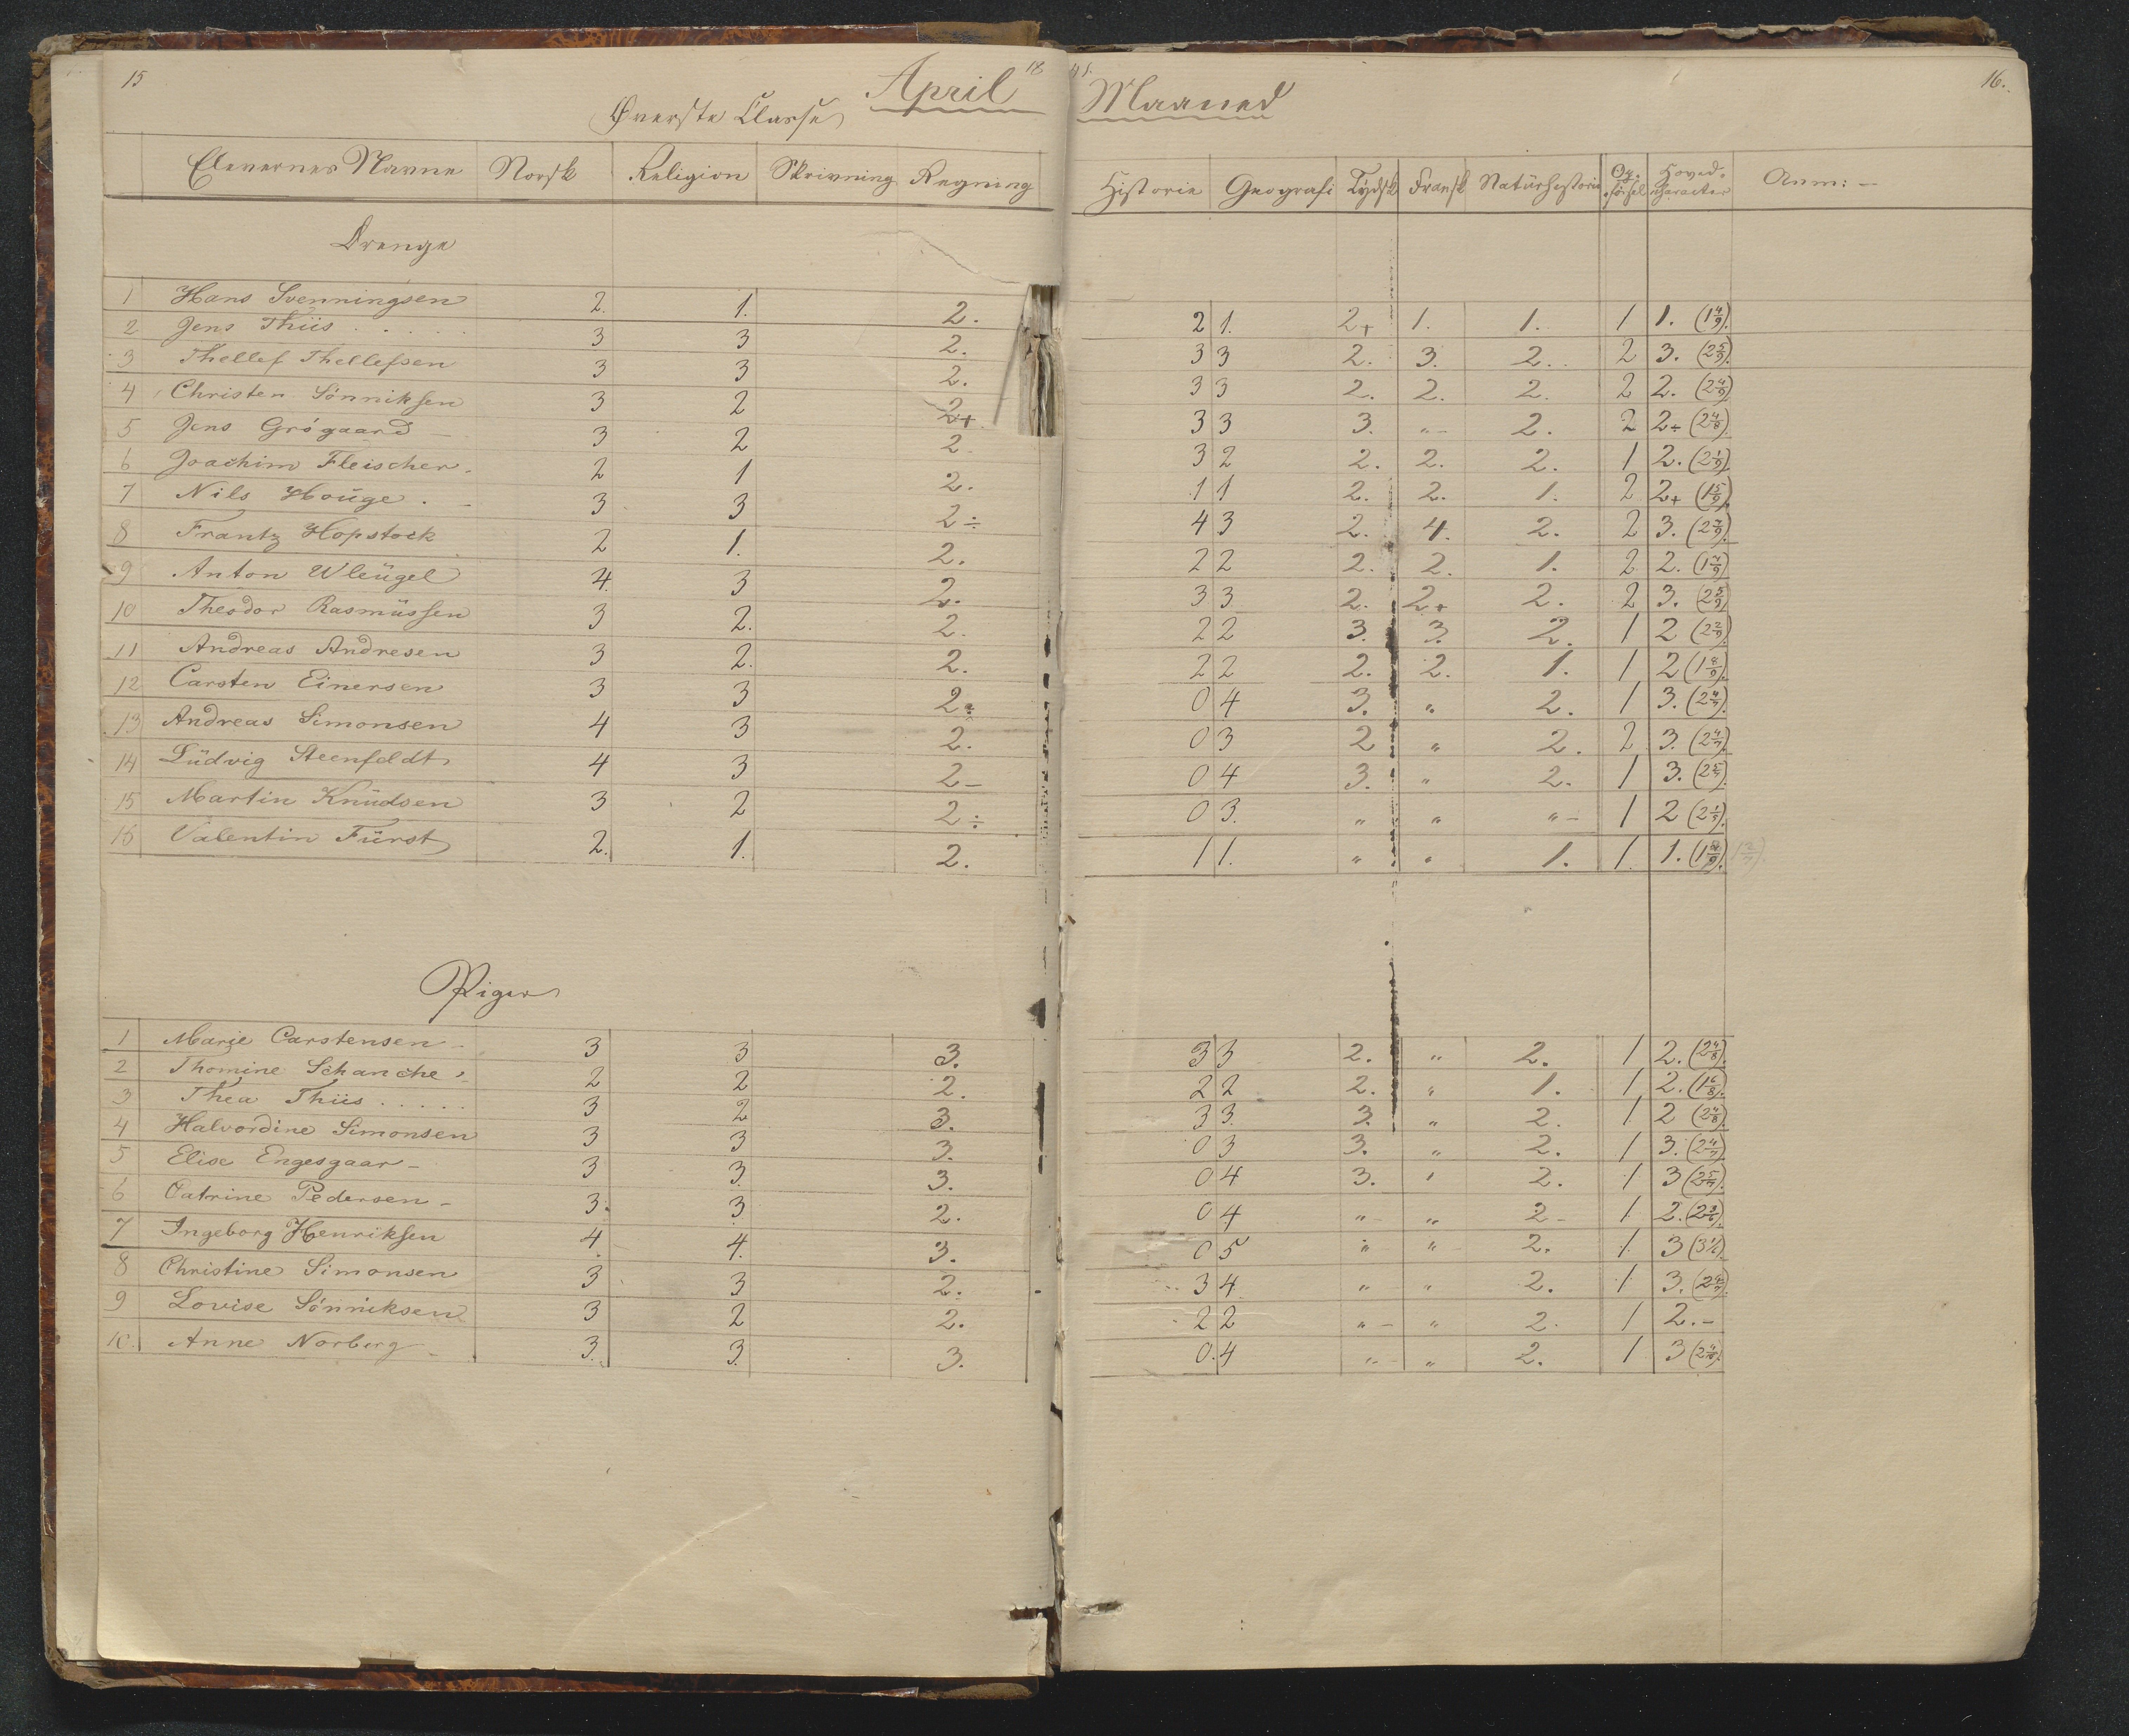 15
April 18
Øverste Classe
Elevernes Navne Norsk Religion Skrivning Regning
Drenge
1 Hans Svenningsen 2. 1. 2.
2 Jens Thiis . . . . . 3 3 2.
3 Thellef Thellefsen 3 3 2.
4 Christen Sönniksen 3 2 2+
5 Jens Grógaard 3 2 2
6 Joachim Fleischer. 2 1 2.
7 Nils Houge . 3 3 2÷
8 Frantz Hopstock 2 1. 2.
9 Anton Wleügel 4. 3 2.
10 Theodor Rasmüssen 3 2. 2.
11 Andreas Andresen 3 2. 2.
12 Carsten Einersen 3 3 2÷
13 Andreas Simonsen 4 3 2.
14 Lüdvig Steenfeldt 4 3 2-
15 Martin Knüdsen 3 2 2÷
16 Valentin Fürst 2. 1. 2.
Piger
1 Marie Carstensen - 3 3 3.
2 Thomine Schanche 2 2 2.
3 Thea Thiis . . . . . 3 2 3.
4 Halvordine Simonsen 3 3 3.
5 Elise Engesgaar - 3 3. 3.
6 Catrine Pedersen - 3. 3 2.
7 Ingeborg Henriksen 4 4. 3.
8 Christine Simonsen 3 3 2.
9 Lovise Sönniksen 3 2 2.
10. Anne Norberg - 3. 3. 3.
41. 16.
Maaned
Historie Geografi Tydsk Fransk Natürhistorie Op-førsel Hoved-character Anm: -
2 1. 2+ 1. 1. 1 1. (1 4/9).
3 3 2. 3. 2. 2 3. (2 5/9).
3 3 2. 2. 2. 2 2. (2 4/9)
3 3 3. " - 2. 2 2÷ (2 4/8).
3 2 2. 2. 2. 1 2. (2 1/9)
1 1 2. 2. 1. 2 2+ (1 5/9).
4 3 2. 4. 2. 2 3. (2 7/9).
2 2 2. 2. 1. 2. 2. (1 7/9)
3 3 2. 2+ 2. 2 3. (2 5/9)
2 2 3. 3. 2. 1 2 (2 2/9).
2 2 2. 2. 1. 1 2 (1 8/9).
0 4 3. " 2. 1 3. (2 4/7).
0 3 2 " 2. 2 3. (2 4/7).
0 4 3. " 2. 1 3. (2 5/7).
0 3. " " " - 1 2 (2 1/5).
1 1. " " 1. 1. 1.
3 3 2. " 2. 1 2. (2 4/8).
2 2 2. " 1. 1 2. (1 6/8).
3 3. 3. " 2. 1 2 (2 4/8).
0 3 3. " 2. 1 3. (2 4/7).
0 4 3. " 2. 1 3 (2 5/7).
0 4 " - " 2 - 1 2. (2 3/6).
0 5 " " 2. 1 3 (3 1/6).
3 4 " " 2. 1 3. (2 4/7).
2 2 " - " 2. 1 2. -
0. 4 " - " 2. 1 3 (2 4/6).